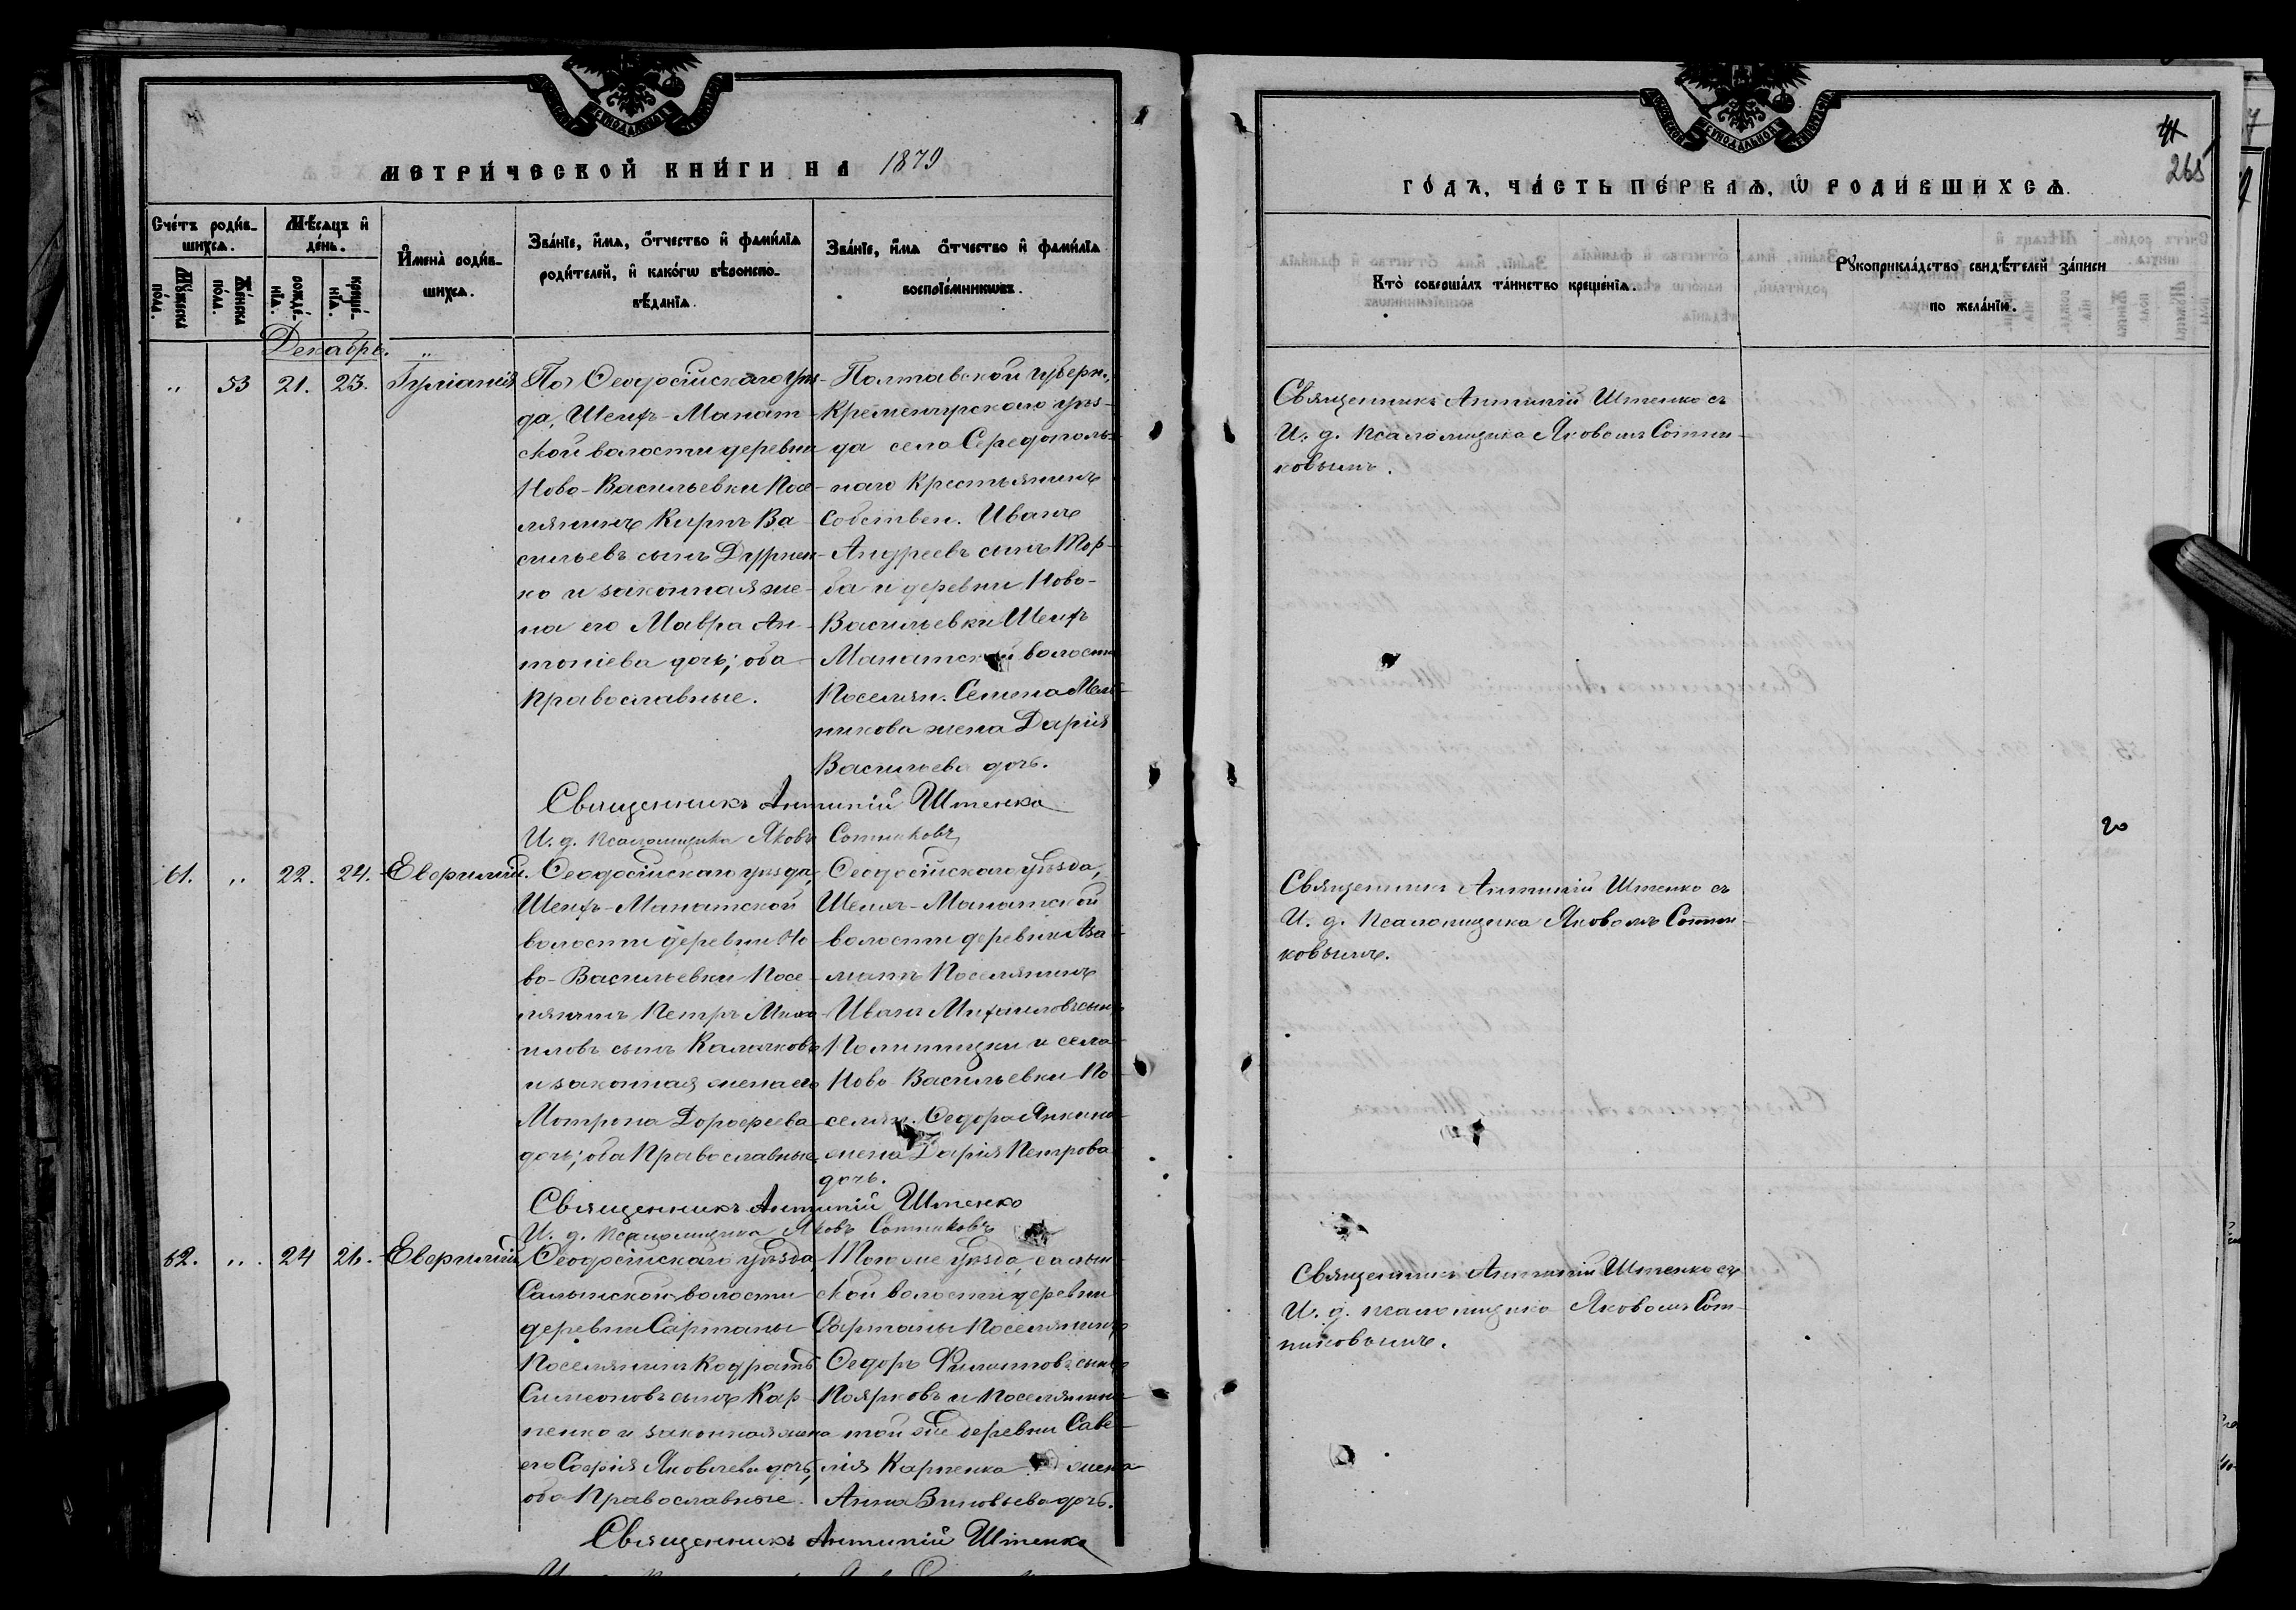 МЕТРИ́ЧЕСКОЙ КНИ́ГИ НА 1879
Сче́тъ роди́в-
шихся.
Мѣ́сяцъ и҆
де́нь.
И҆мена̀ роди́в-
шихся.
Зва́нїе, и҆́мя, ѻ҆́тчество и҆ фами́лїя
роди́телей, и҆ како́гѡ вѣроиспо-
вѣ́данїя.
Зва́нїе, и҆́мя ѻ҆́тчество и҆ фами́лїя
воспрїе́мникѡвъ.
Му́жеска
по́ла.
Же́нска
по́ла.
рожде́-
нїя.
креще́-
нїя.
Декабрь.
„ 53 21. 23. Гуліанія
По Ѳеодосійскаго уѣз-
да, Шейхъ-Манат-
ской волости деревни
Ново-Васильевки Посе-
лянинъ Киръ Ва-
сильевъ сынъ Дурнен-
ко и законная же-
на его Мавра Ан-
тоніева дочь; оба
Православные.
Полтавской губерн.,
Кременчугскаго уѣз-
да села
наго Крестьянинъ
Собствен. Иванъ
Андреевъ сынъ Тор-
ба и деревни Ново-
Васильевки Шейхъ
Манатской волости
Поселян. Семена Мель-
никова жена Дарія
Васильева дочь.
Священникъ Антипій Штенко
И. д. Псаломщика Яковъ Сотниковъ
61. „ 22. 24. Евгеній.
Ѳеодосійскаго уѣзда,
Шейхъ-Манатской
волости деревни Но-
во-Васильевки Посе-
лянинъ Петръ Миха-
иловъ сынъ Калачковъ
и законная жена его
Матрона Дорофеева
дочь; оба Православные,
Ѳеодосійскаго уѣзда,
Шейхъ-Манатской
волости деревни Аза-
матъ Поселянинъ
Иванъ Михаиловъ сынъ
и села
Ново Васильевки По-
селян. Ѳедора
жена Дарія Петрова
дочь.
Священникъ Антипій Штенко
И. д. Псаломщика Яковъ Сотниковъ
62. „ 24 26. Евгеній
Ѳеодосійскаго уѣзда,
Салынской волости
деревни Сартаны
Поселянинъ Кодратъ
Симеоновъ сынъ Кар-
пенко и законная жена
его Софія Яковлева дочь,
оба Православные.
Того же уѣзда, Салын-
ской волости деревни
Сартаны Поселянинъ
Ѳедоръ Филиповъ сынъ
Поярковъ и Поселянина
той же деревни Саве-
лія Карпенка жена
Анна Зиновьева дочь.
Священникъ Антипій Штенко
265
ГО́ДЪ, ЧА́СТЬ ПЕ́РВАЯ, Ѡ҆ РОДИ́ВШИХСЯ.
Кто̀ соверша́лъ та́инство креще́нїя.
Рꙋкоприкла́дство свидѣ́телей за́писи
по жела́нїю.
Священникъ Антипій Штенко съ
И. д. Псаломщика Яковомъ Сотни-
ковымъ.
20
Священникъ Антипій Штенко съ
И. д. Псаломщика Яковомъ Сотни-
ковымъ.
Священникъ Антипій Штенко съ
И. д. псаломщика Яковомъ Сот-
никовымъ.